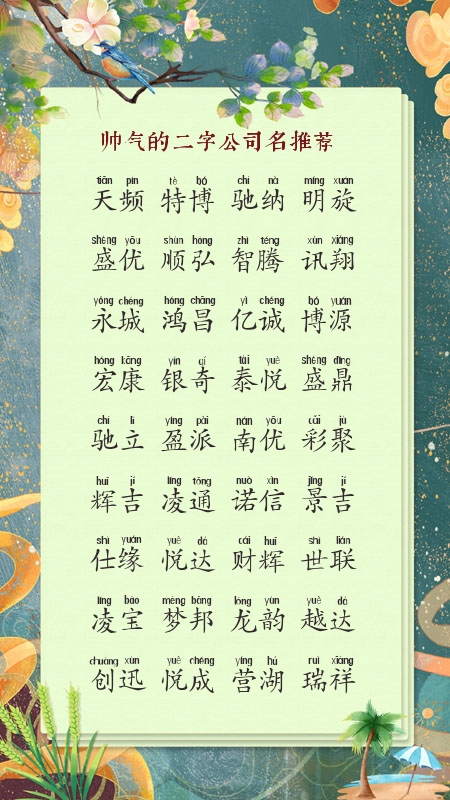 帅气的二字公司名推荐
tiān pín tè bó chí nà míng xuán
天频 特博 驰纳 明旋
shèng yōu shùn hóng zhì téng xùn xiáng
盛优 顺弘 智腾 讯翔
yǒng chéng hóng chāng yì chéng bó yuán
永城 鸿昌 亿诚 博源
hóng kāng yín qí tài yuè shèng dǐng
宏康 银奇 泰悦 盛鼎
chí lì yíng pài nán yōu cǎi jù
驰立 盈派 南优 彩聚
huī jí líng tōng nuò xìn jǐng jí
辉吉 凌通 诺信 景吉
shì yuán yuè dá cái huī shì lián
仕缘 悦达 财辉 世联
líng bǎo mèng bāng lóng yùn yuè dá
凌宝 梦邦 龙韵 越达
chuàng xùn yuè chéng yíng hú ruì xiáng
创迅 悦成 营湖 瑞祥